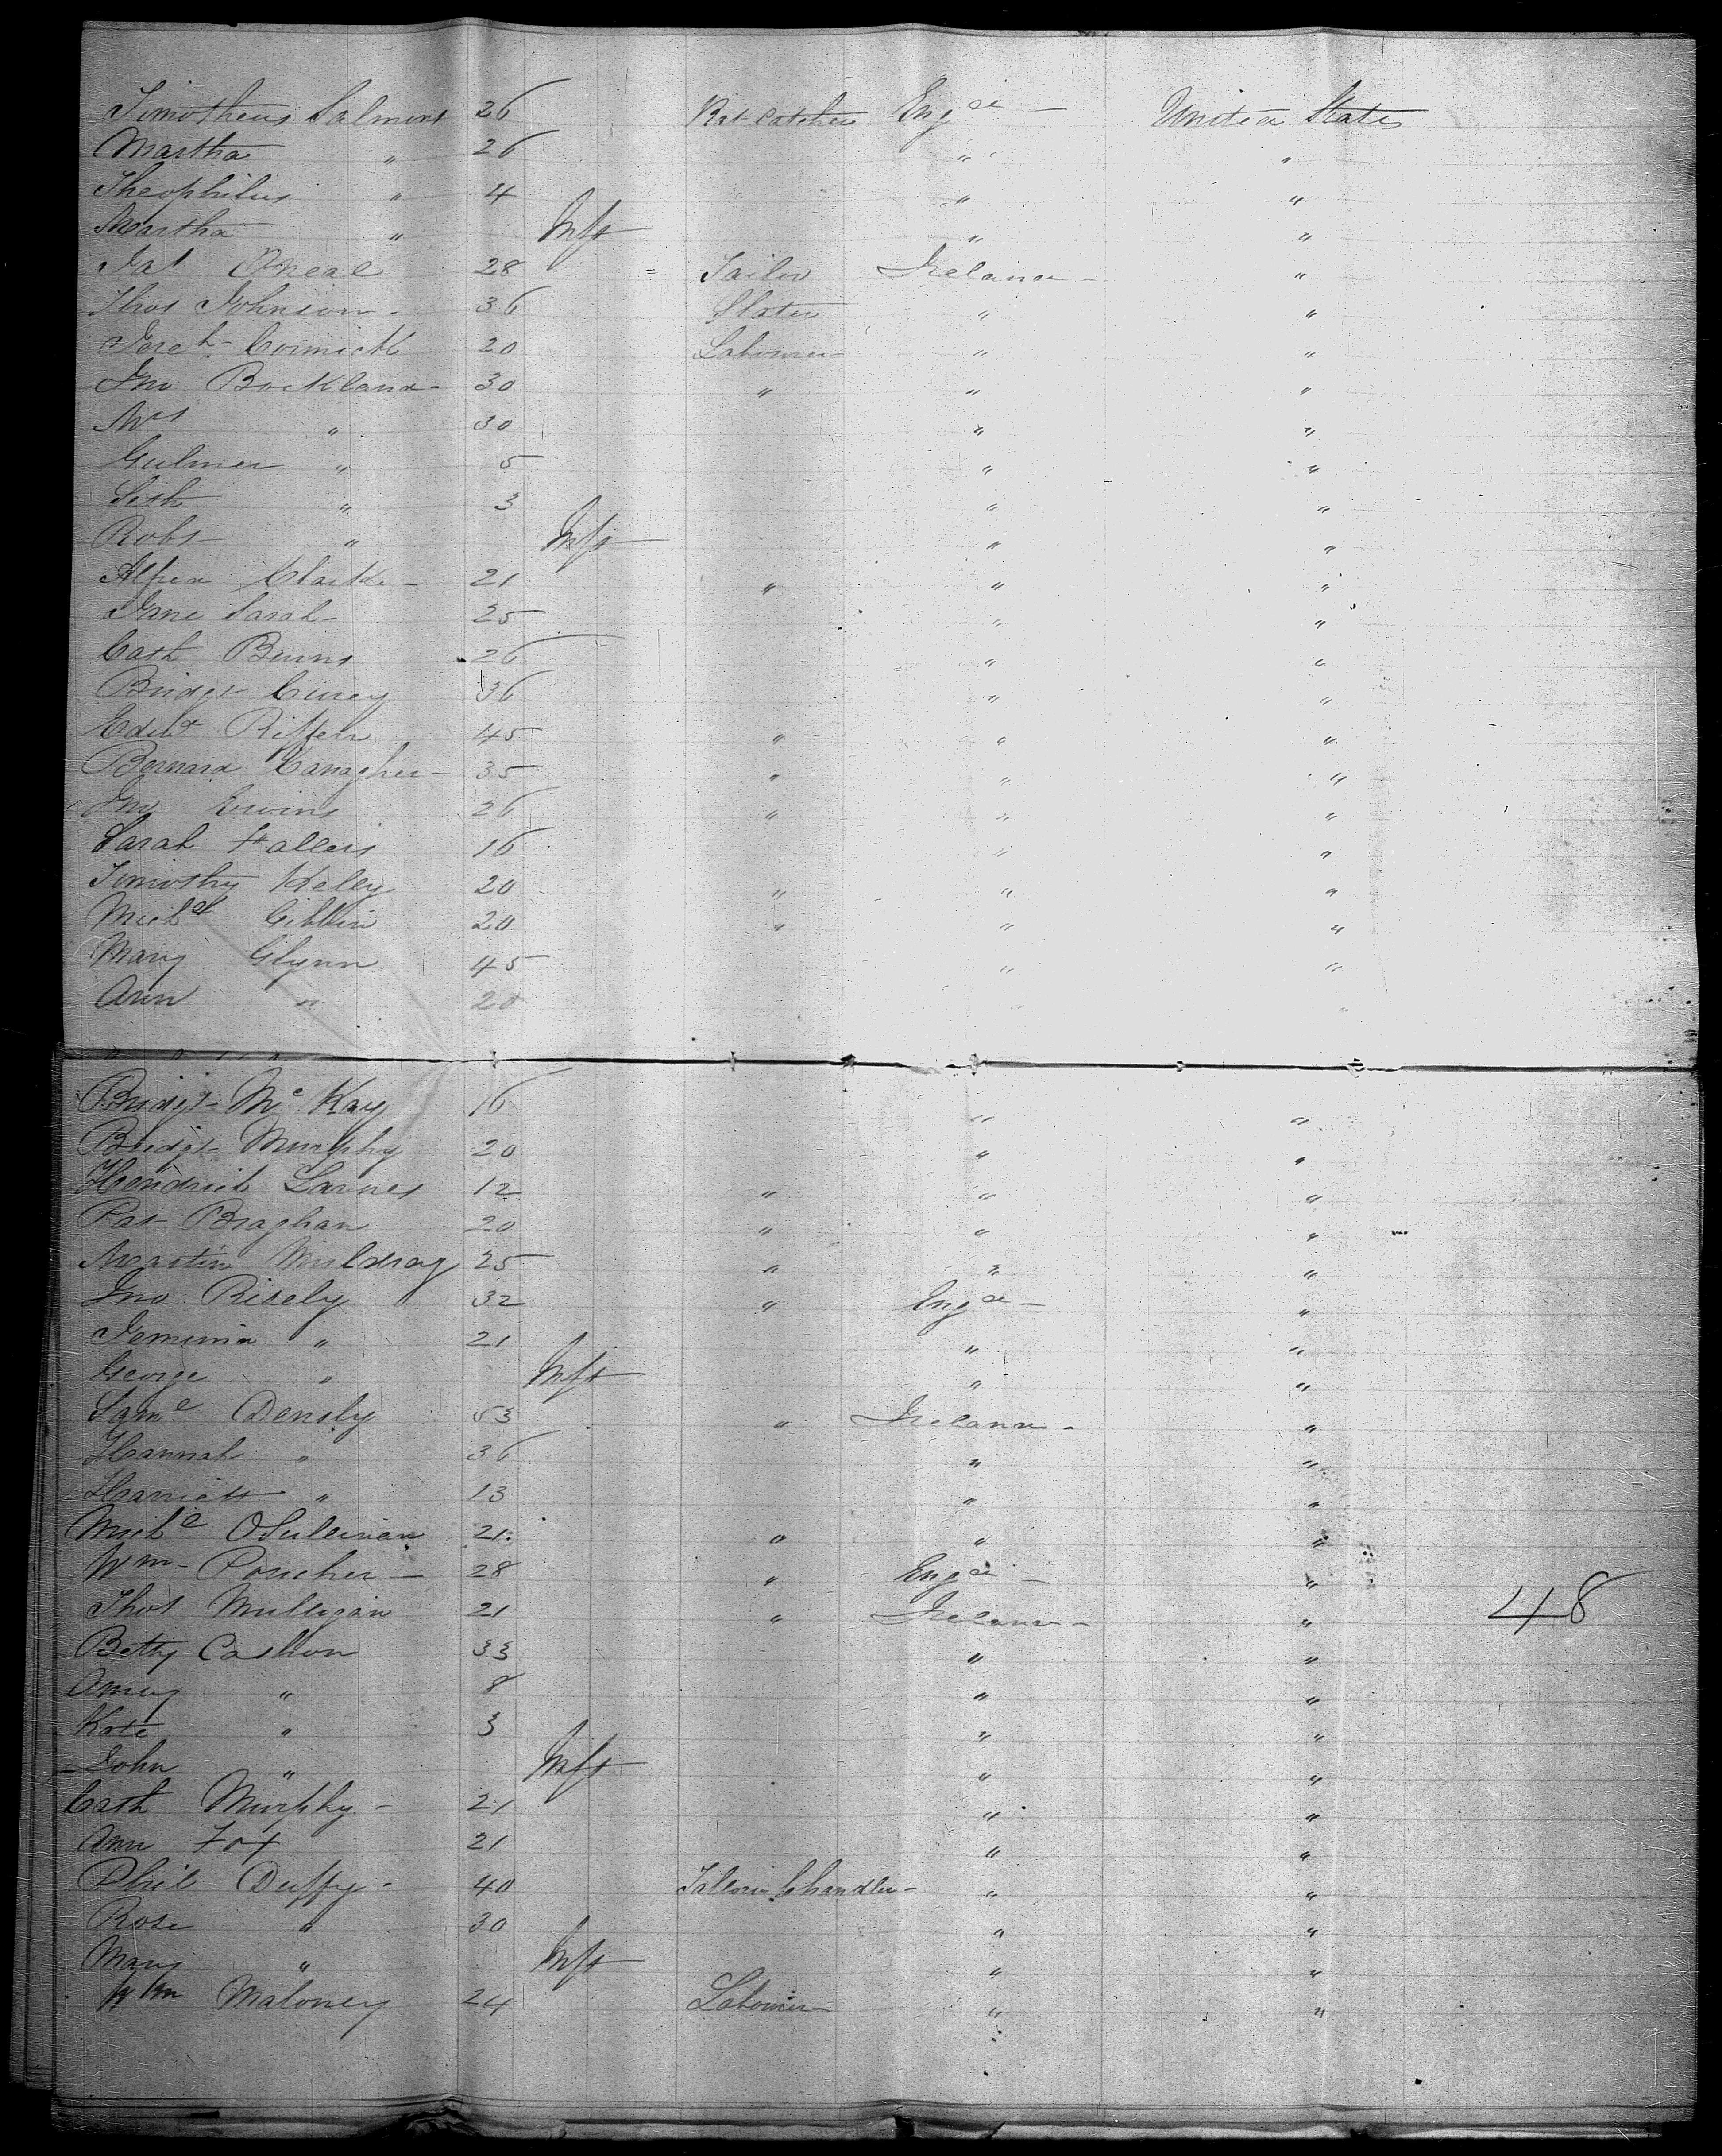 Timotheus Salmons 26 Rat Catcher Engd — United States
Martha " 26 " "
Theophilus " 4 " "
Martha " Inft " "
Pat O'Neal 28 = Tailor Ireland - "
Thos Johnson - 36 Slater " "
Jereh Cormick 20 Labourer " "
Jno Bockland - 30 " " "
Mrs " 30 " "
Gulmer " 5 " "
Seth " 3 " "
Robt " Inft " "
Alfred Clarke - 21 " " "
Jane Sarah - 25 " "
Cath Burns 26 " "
Bridgt 36 " "
Edwd 45 " " "
Bernard - 35 " " "
Jno 26 " " "
Sarah 16 " "
Timothy Kelly 20 " " "
Michl 20 " " "
Mary Glynn 45 " "
Ann " 20 "
Bridgt McKay 16 " "
Bridgt Murphy 20 " "
12 " " "
Pat Braghan 20 " " "
Martin 25 " " "
Jno Risely 32 " Engd - "
Jemima " 21 " "
George " Inft " "
Saml Densly 53 " Ireland - "
Hannah " 36 " "
Harriett " 13 " "
Michl OSullivan 21 " " "
Wm Poucher - 28 " Engd - "
Thos Mulligan 21 " Ireland - " 48
Betty Caslton 33 " "
" 8 " "
Kate " 3 " "
John " Inft " "
Cath Murphy - 21 " "
Ann Fox 21 " "
Phil Duffy - 40 Tallow Chandler - " "
Rose " 30 " "
Mary " Inft " "
Wm Maloney 24 Labourer " "